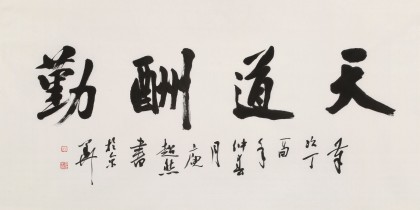 天道酬勤
歲次丁酉年仲春月超然書於京華